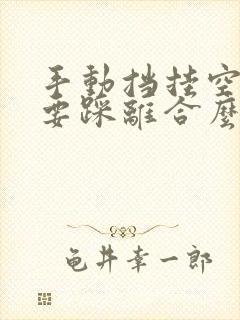 手動挡挂空
要踩離合麼
龟井幸一郎